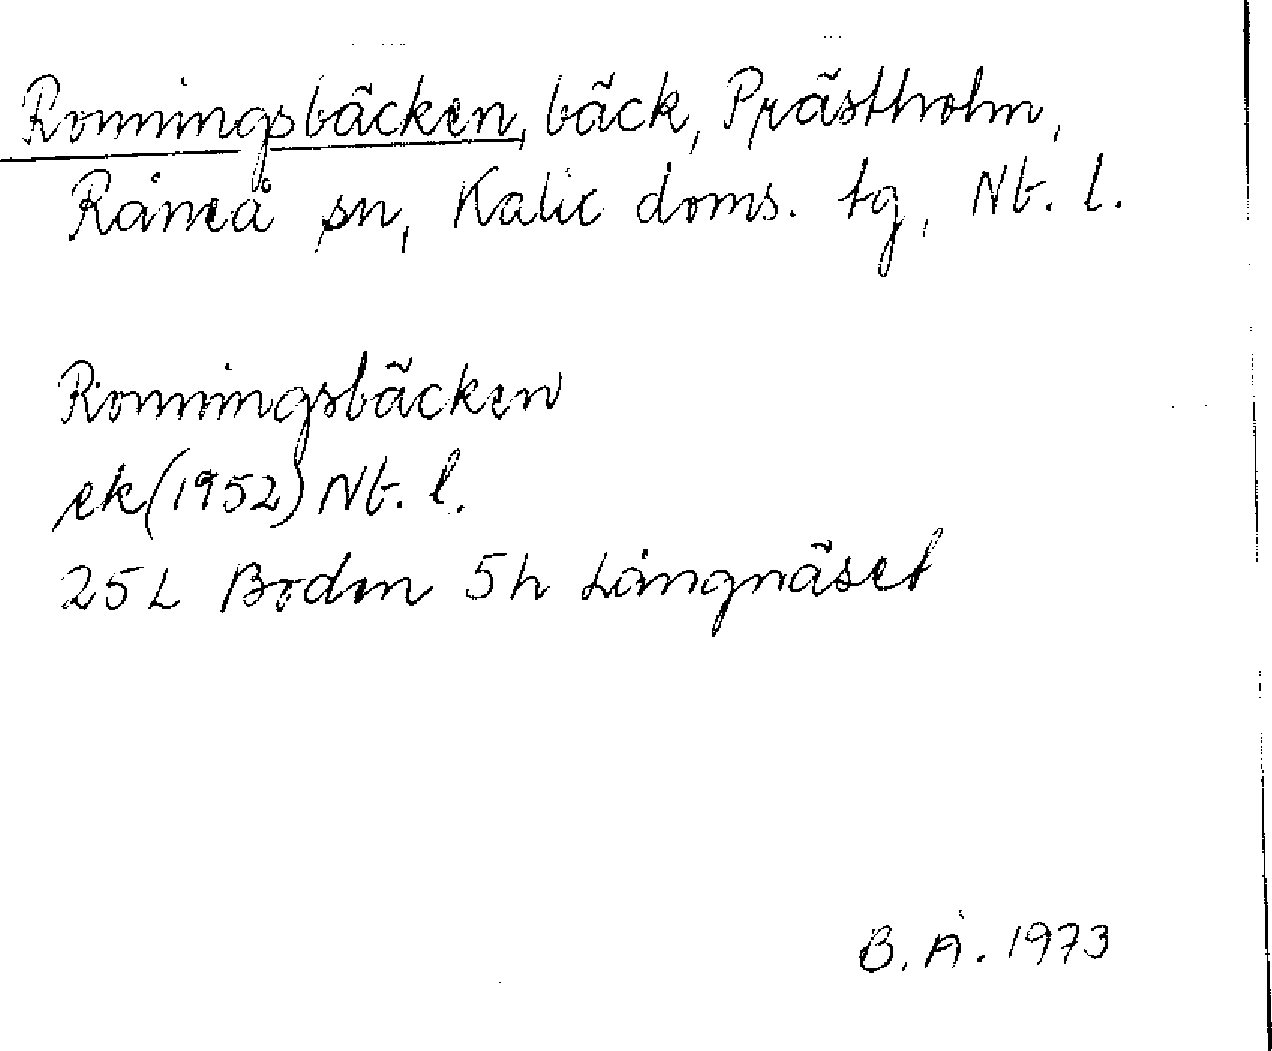 Ronningsbäcken, bäck, Prästholm,
Råneå sn, Kalix doms. tg, Nb. l.
Ronningsbäcken
ek (1952) Nb. l.
25L Boden 5h Långnäset
B. Å. 1973